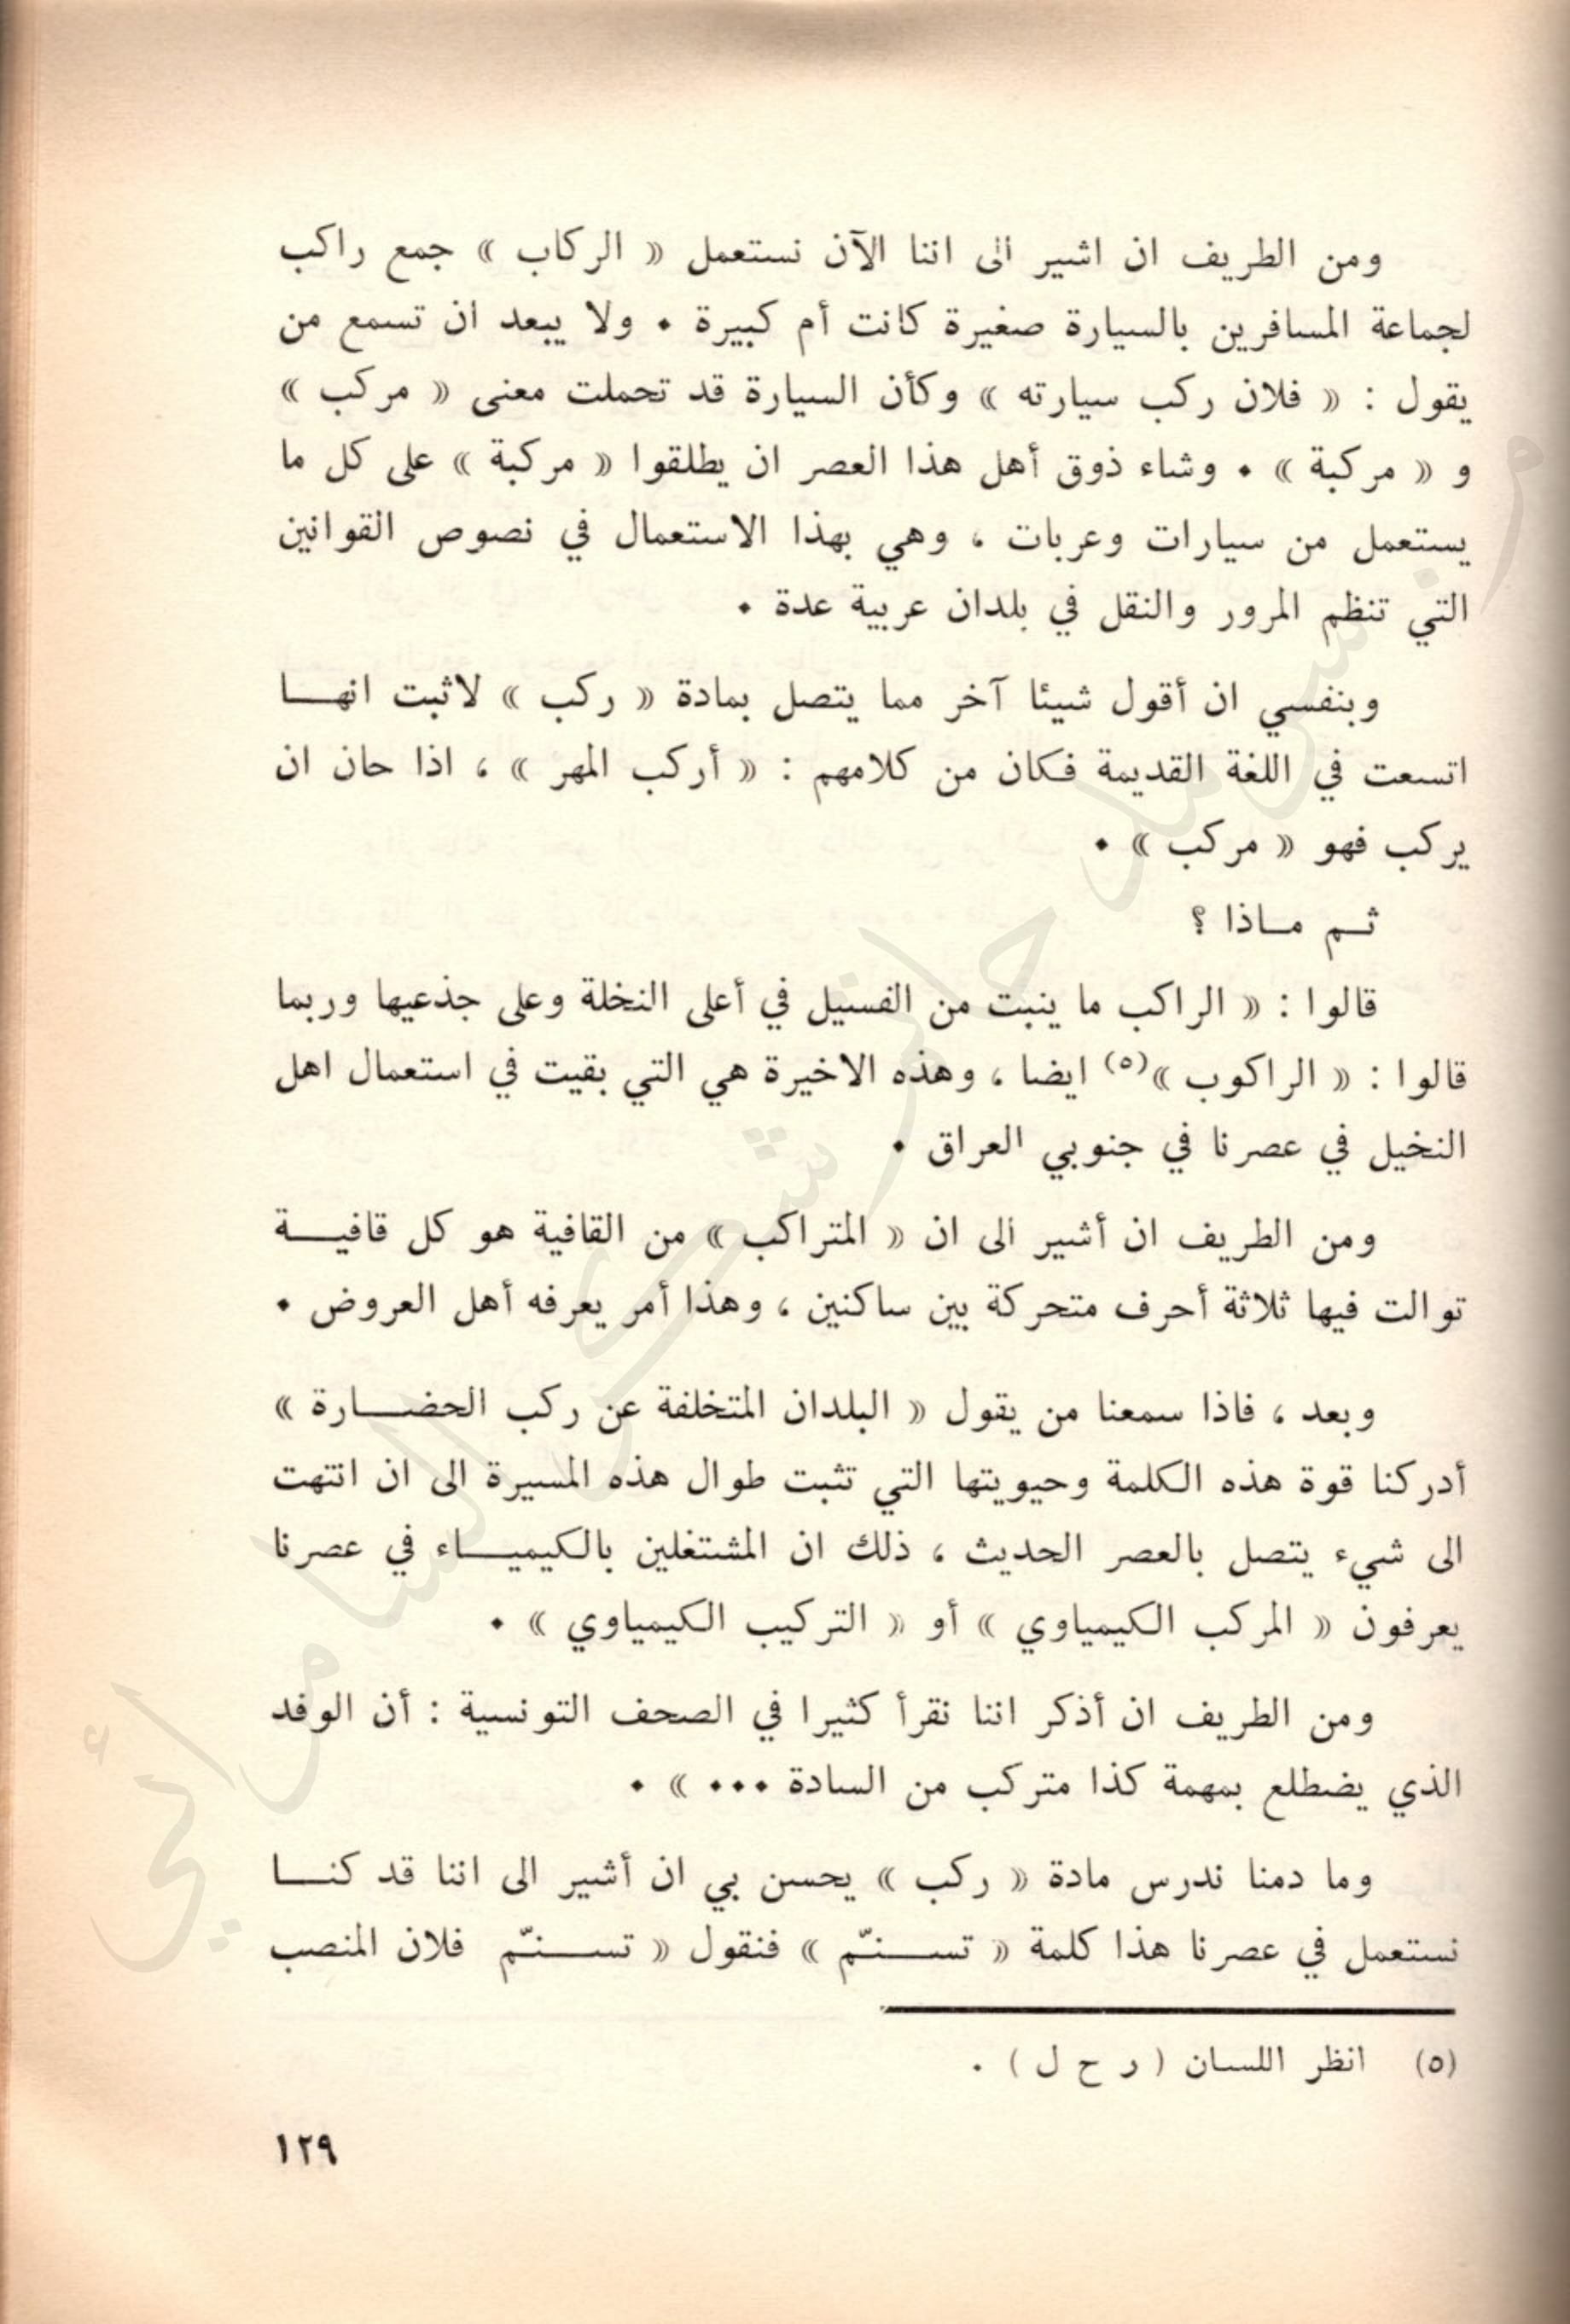 ومن الطريف ان اشير الى اننا الآن نستعمل « الركاب » جمع راكب
لجماعة المسافرين بالسيارة صغيرة كانت أم كبيرة . ولا يبعد ان تسمع من
يقول : « فلان ركب سيارته » وكأن السيارة قد تحملت معنى « مركب »
و « مركبة » . وشاء ذوق أهل هذا العصر ان يطلقوا « مركبة » على كل ما
يستعمل من سيارات وعربات ، وهي بهذا الاستعمال في نصوص القوانين
التي تنظم المرور والنقل في بلدان عربية عدة .
وبنفسي ان أقول شيئا آخر مما يتصل بمادة « ركب » لاثبت انهـــا
اتسعت في اللغة القديمة فكان من كلامهم : « أركب المهر » ، اذا حان ان
يركب فهو « مركب » .
ثــم مــاذا ؟
قالوا : « الراكب ما ينبت من الفسيل في أعلى النخلة وعلى جذعيها وربما
قالوا : « الراكوب »(٥) ايضا ، وهذه الاخيرة هي التي بقيت في استعمال اهل
النخيل في عصرنا في جنوبي العراق .
ومن الطريف ان أشير الى ان « المتراكب » من القافية هو كل قافيـــة
توالت فيها ثلاثة أحرف متحركة بين ساكنين ، وهذا أمر يعرفه أهل العروض .
وبعد ، فاذا سمعنا من يقول « البلدان المتخلفة عن ركب الحضـــارة »
أدركنا قوة هذه الكلمة وحيويتها التي تثبت طوال هذه المسيرة الى ان انتهت
الى شيء يتصل بالعصر الحديث ، ذلك ان المشتغلين بالكيميـــاء في عصرنا
يعرفون « المركب الكيمياوي » أو « التركيب الكيمياوي » .
ومن الطريف ان أذكر اننا نقرأ كثيرا في الصحف التونسية : أن الوفد
الذي يضطلع بمهمة كذا متركب من السادة ... » .
وما دمنا ندرس مادة « ركب » يحسن بي ان أشير الى اننا قد كنـــا
نستعمل في عصرنا هذا كلمة « تســـنّم » فنقول « تســـنّم فلان المنصب
(٥) انظر اللسان ( ر ح ل ) .
١٢٩
من خزانة شكر السامرائي